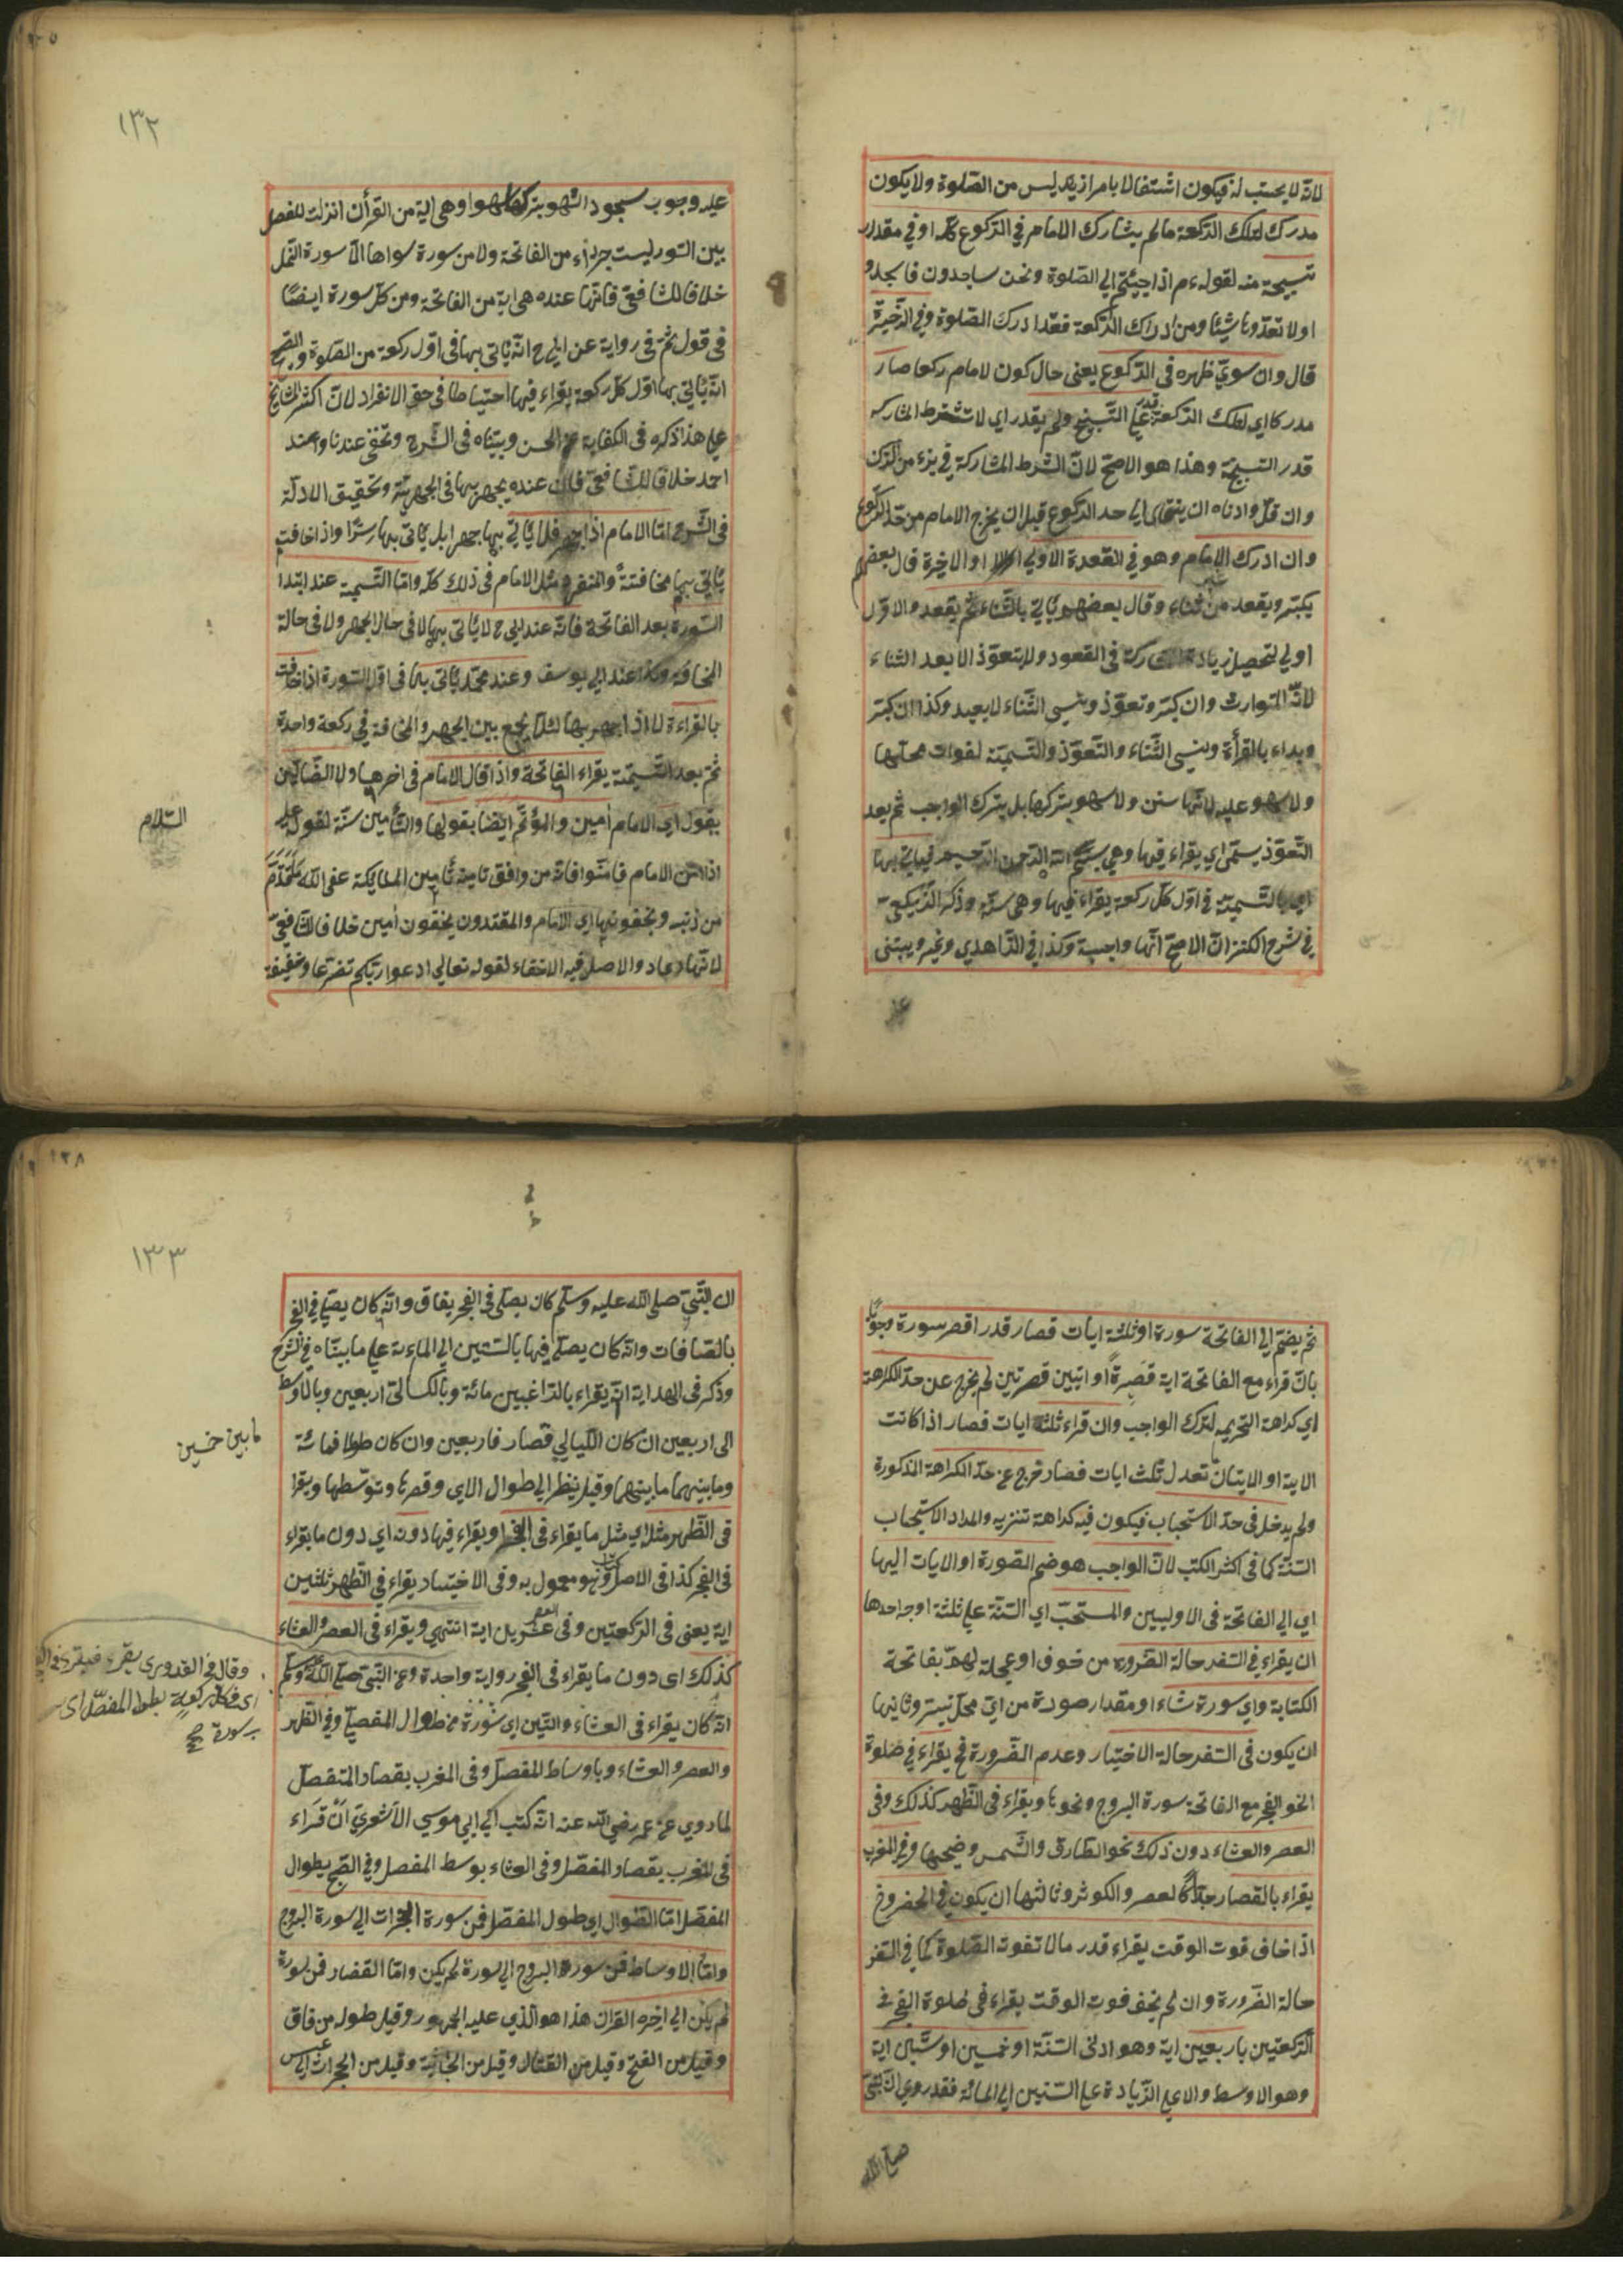 لانه لا يحتسب له فيكون اشتغالا بامر ازيد ليس من الصلوة ولا يكون
مدرك لتلك الركعة ما لم يشارك الامام في الركوع كله او في مقدار
تسبيحة منه لقوله ءم اذا جيئتم الى الصلوة ونحن ساجدون فاسجدو
اولا تعدوها شيئا ومن ادراك الركعة فقد ادرك الصلوة وفي الذخيرة
قال وان سوى ظهره في الركوع يعنى حال كون الامام ركعا صار
مدركا اي لتلك الركعة قدر على التسبيح ولم يقدر اي لا تشترط المشاركه
قدر التسبيحة وهذا هو الاصح لان الشرط المشاركة في جزء من الركن
وان قل وادناه ان ينتهى الى حد الركوع قبل ان يخرج الامام من حد الركوع
وان ادرك الامام وهو في القعدة الاولى او الاخيرة قال بعضهم
يكبر ويقعد من غير ثناء وقال بعضهم يأتي بالثناء ثم يقعد والاول
اولى لتحصيل زيادة المشاركة في القعود ولا يتعوذ الا بعد الثناء
لانه التوارث وان كبر وتعوذ ونسى الثناء لا يعيد وكذا ان كبر
وبداء بالقرأة ونسى الثناء والتعوذ والتسمية لفوات محلها
ولا سهو عليه لانها سنن ولا سهو بتركها بل بترك الواجب ثم بعد
التعوذ يسمى اي يقراء فيها وهي بسم الله الرحمن الرحيم فيأتي بها
اي بالتسمية في اول كل ركعة يقراء فيها وهى سنة وذكر الزيلعى
في شرح الكنز ان الاصح انها واجبة وكذا في الزاهدي وغيره ويبتنى
عليه
١٣٢
عليه وجوب سجود السهو بتركها سهوا وهي اية من القرأن انزلت للفصل
بين السور ليست جزاء من الفاتحة ولا من سورة سواها الا سورة النمل
خلافا للشافعى فانها عنده هى اية من الفاتحة ومن كل سورة ايضا
في قول ثم في رواية عن ابي ح انه يأتى بها في اول ركعة من الصلوة والصحيح
انه يأتى بها اول كل ركعة يقراء فيها احتياطا في حق الانفراد لان اكثر المشايخ
على هذا ذكره في الكفاية عن الحسن وبيناه في الشرح وتخفى عندنا وعند
احمد خلافا للشافعى فان عنده يجهر بها في الجهرية وتحقيق الادلة
في الشرح اما الامام اذا جهر فلا يأتي بها جهرا بل يأتى بها سرا واذا خافت
يأتى بها مخافتة والمنفرد مثل الامام في ذلك كله واما التسمية عند ابتدا
السورة بعد الفاتحة فانه عند ابي ح لا يأتى بها لا في حال الجهر ولا في حالة
المخافة وكذا عند ابي يوسف وعند محمد يأتى بها في اول السورة اذا خافت
بالقراءة لا اذا جهر بها لئلا يجمع بين الجهر والمخافة في ركعة واحدة
ثم بعد التسمية يقراء الفاتحة واذا قال الامام في اخرها ولا الضالين
يقول اي الامام امين والمؤتم ايضا يقولها والتأمين سنة لقوله عليه
السلام
اذا امن الامام فامنوا فانه من وافق تامينه تأمين الملايكة غفر الله ما تقدم
من ذنبه ويخفونها اي الامام والمقتدون يخفون امين خلافا للشافعى
لانها دعاء والاصل فيه الاخفاء لقوله تعالى ادعوا ربكم تضرعا وخفيفة
ثم يضم الى الفاتحة سورة او ثلثة ايات قصار قدر اقصر سورة وجوبا
بان قراء مع الفاتحة اية قصيرة او ايتين قصرتين لم يخرج عن حد الكراهة
اي كراهة التحريم لترك الواجب وان قراء ثلثة ايات قصار اذا كانت
الاية او الايتان تعدل ثلث ايات قصار خرج عن حد الكراهة المذكورة
ولم يدخل في حد الاستحباب فيكون فيه كراهة تنزيه والمراد الاستحباب
السنة كما في اكثر الكتب لان الواجب هو ضم الصورة او الايات اليها
اي الى الفاتحة في الاوليين والمستحب اي السنة على ثلثة اوجه احدها
ان يقراء في السفر حالة الضرورة من خوف او عجلة لهم بفاتحة
الكتابة واي سورة شاء او مقدار صورة من اي محل تيسر وثانيها
ان يكون في السفر حالة الاختيار وعدم الضرورة فح يقراء في صلوة
الفجر مع الفاتحة سورة البروج ونحوها ويقراء في الظهر كذلك وفى
العصر والعشاء دون ذلك نحو الطارق والشمس وضحيها وفي المغرب
يقراء بالقصار جدا كالعصر والكوثر وثالثها ان يكون في الحضر وح
اذا خاف فوت الوقت يقراء قدر ما لا تفوته الصلوة كما في السفر
حالة الضرورة وان لم يخف فوت الوقت يقراء في صلوة الفجر في
الركعتين باربعين اية وهو ادنى السنة او خمسين او ستين اية
وهو الاوسط والاعلى الزيادة على الستين الى المائة فقد روي ان النبى
صلى الله
١٣٣
ان النبي صلى الله عليه وسلم كان يصلى في الفجر بقاق وانه كان يصلي في الفجر
بالصافات وانه كان يصلى فيها بالستين الى الماءة على ما بيناه في الشرح
وذكر في الهداية انه يقراء بالراغبين مائة وبالكسالى اربعين وبالاوسط
ما بين خمسين
الى اربعين ان كان الليالى قصار فاربعين وان كان طولا فمائة
وما بينهما ما بينهما وقيل ينظر الى طوال الاي وقصرها وتوسطها ويقرا
في الظهر مثل اي مثل ما يقراء في الفجر او يقراء فيها دونه اي دون ما يقراء
في الفجر كذا في الاصل وهو معمول به وفى الاختيار يقراء في الظهر ثلثين
اية يعنى في الركعتين وفى العصر عشرين اية انتهى ويقراء في العصر والعشاء
كذلك اى دون ما يقراء في الفجر رواية واحدة وعن النبي صلى الله عليه وسلم
انه كان يقراء في العشاء والتين اي سورة من طوال المفصل وفي الظهر
وقال في القدورى يقرء فيقرء في
اى في كل ركعة بطوال المفصل اى
بسورة صح
والعصر والعشاء وباوساط المفصل وفى المغرب بقصار المنفصل
لما روي عن عمر رضي الله عنه انه كتب الى ابي موسى الاشعري ان قراء
في المغرب بقصار المفصل وفى العشاء بوسط المفصل وفي الصبح بطوال
المفصل اما الطوال اي طول المفصل فمن سورة الحجرات الى سورة البروج
واما الاوساط فمن سورة البروج الى سورة لم يكن واما القصار فمن سورة
لم يكن الى اخره القران هذا هو الذي عليه الجمهور وقيل طوله من قاق
وقيل من الفتح وقيل من القتال وقيل من الجاثية وقيل من الحجرات الى عبس